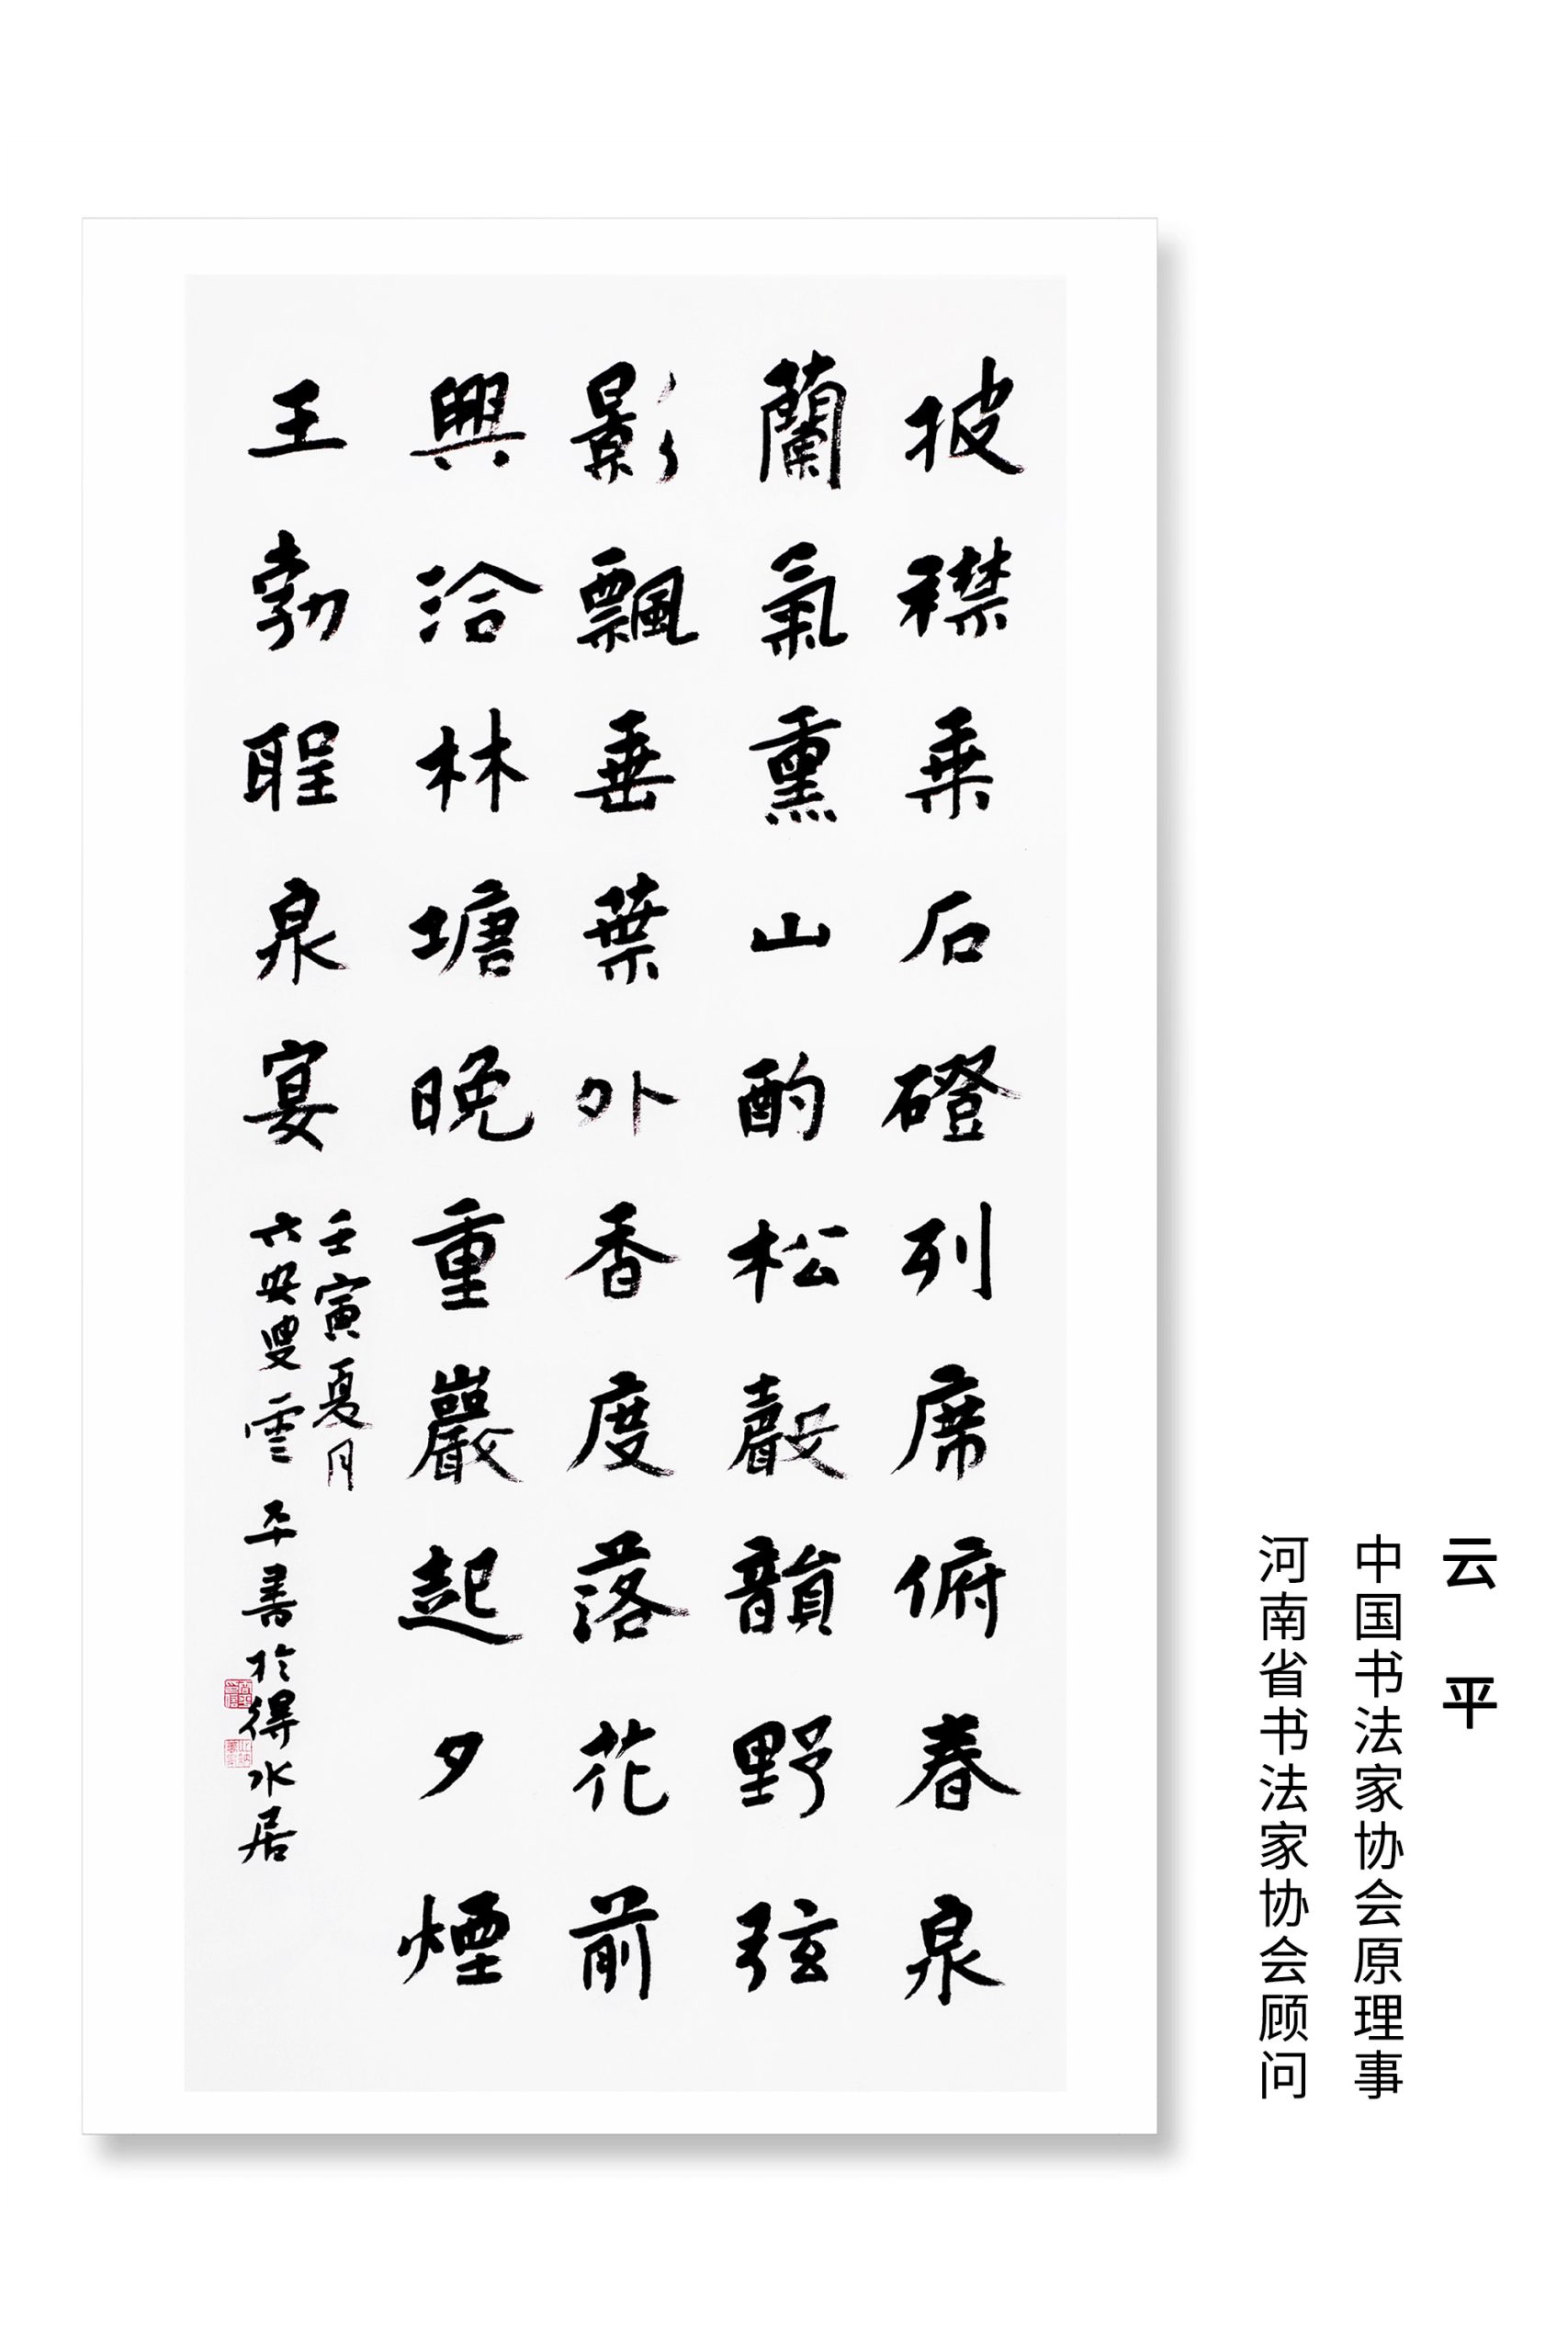 披襟乗石磴列席俯春泉
蘭氣熏山酌松聲韻野弦
影飄垂葉外香度落花前
興洽林塘晚重巖起夕煙
王勃聖泉宴
壬寅夏月
六安叟雲平書於得水居
云平
中国书法家协会原理事
河南省书法家协会顾问